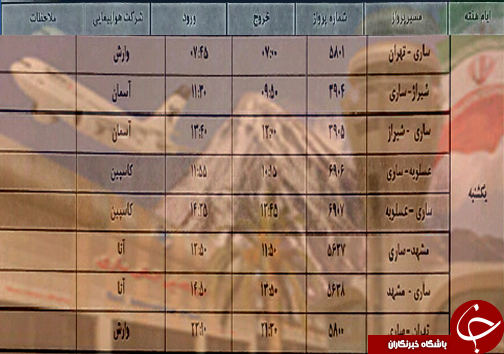 ایام هفته مسیرپرواز شماره پرواز خروج ورود شرکت هواپیمایی ملاحظات
یکشنبه
ساری - تهران ۵۸۰۱ ۰۷:۰۰ ۰۷:۴۵ وارش
شیراز-ساری ۳۹۰۴ ۰۹:۵۰ ۱۱:۳۰ آسمان
ساری - شیراز ۳۹۰۵ ۱۲:۰۰ ۱۳:۴۰ آسمان
عسلویه-ساری ۶۹۰۶ ۱۰:۱۵ ۱۱:۵۵ کاسپین
ساری-عسلویه ۶۹۰۷ ۱۲:۴۵ ۱۴:۲۵ کاسپین
مشهد-ساری ۵۶۳۷ ۱۱:۵۰ ۱۲:۵۰ آتا
ساری - مشهد ۵۶۳۸ ۱۳:۵۰ ۱۴:۵۰ آتا
تهران-ساری ۵۸۰۰ ۲۱:۲۰ ۲۲:۱۰ وارش
باشگاه خبرنگاران